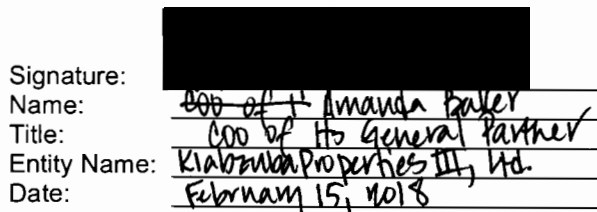 Signature:
Name: COO of I Amanda Baker
Title: COO of its General Partner
Entity Name: Klabzuba Properties III, Ltd.
Date: February 15, 2018